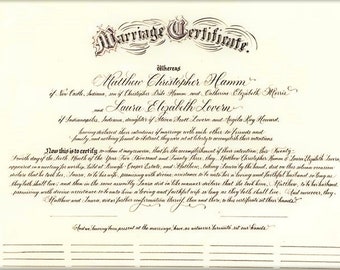 Marriage Certificate.
Whereas
Matthew Christopher Hamm
of New Castle, Indiana, son of Christopher Hamm and Catherine Elizabeth Morris
and
Laura Elizabeth Lovern
of Indianapolis, Indiana, daughter of Steven Scott Lovern and Angela Kay
having declared their intentions of marriage with each other to friends and
family, and nothing appearing to obstruct
Now this is to certify to whom it may concern, that for the accomplishment of their intention, this Twenty
day of the Month of the Year Two Thousand and Twenty Three, they, Matthew Christopher Hamm & Laura Elizabeth Lovern,
appeared in a meeting for and Matthew, taking Laura by the hand, did on this solemn occasion
declare that he took her, Laura, to be his wife, promising with divine assistance to be unto her a loving and faithful husband so long as
they both shall live; and then in the same assembly Laura did in like manner declare that she took him, Matthew, to be her husband,
promising with divine assistance to be unto him a loving and faithful wife so long as they both shall live. And moreover, they,
Matthew and Laura, did as further confirmation thereof, then and there, to this certificate set their hands.
And we, having been present at the marriage, have as witnesses hereunto set our hands.